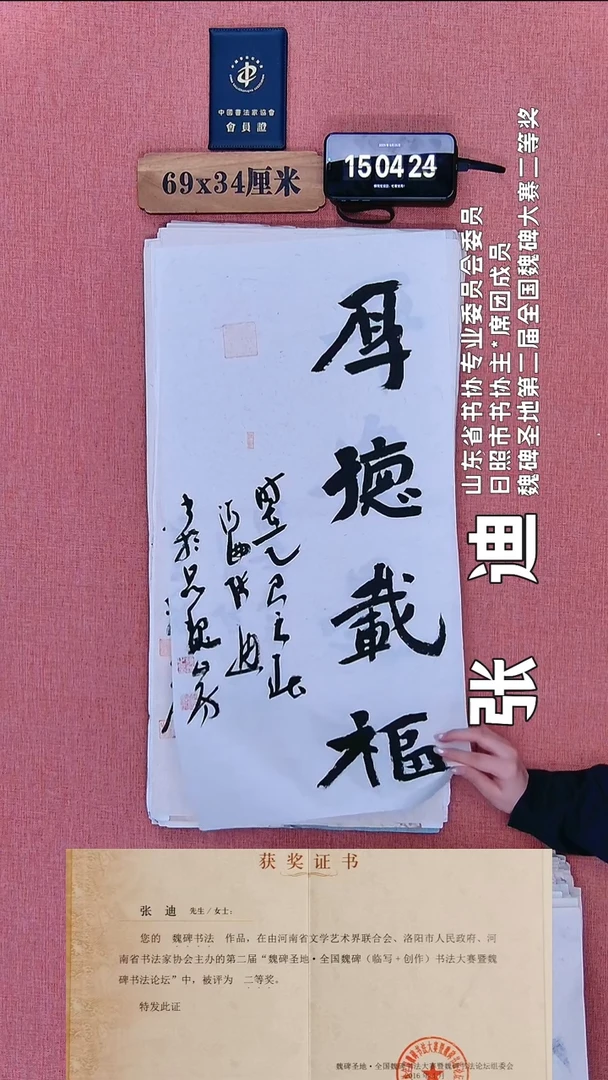 中国書法家協會
會員證
69x34厘米
15 04 24
厚德載福
山东省书协专业委员会委员
日照市书协主*席团成员
魏碑圣地第二届全国魏碑大赛二等奖
张 迪
获奖证书
张 迪 先生/女士:
您的 魏碑书法 作品，在由河南省文学艺术界联合会、洛阳市人民政府、河
南省书法家协会主办的第二届“魏碑圣地·全国魏碑（临写+创作）书法大赛暨魏
碑书法论坛”中，被评为 二等奖。
特发此证
魏碑圣地·全国魏碑书法大赛暨魏碑书法论坛组委会